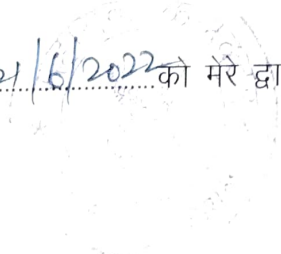 /6/2022 को मेरे द्वा